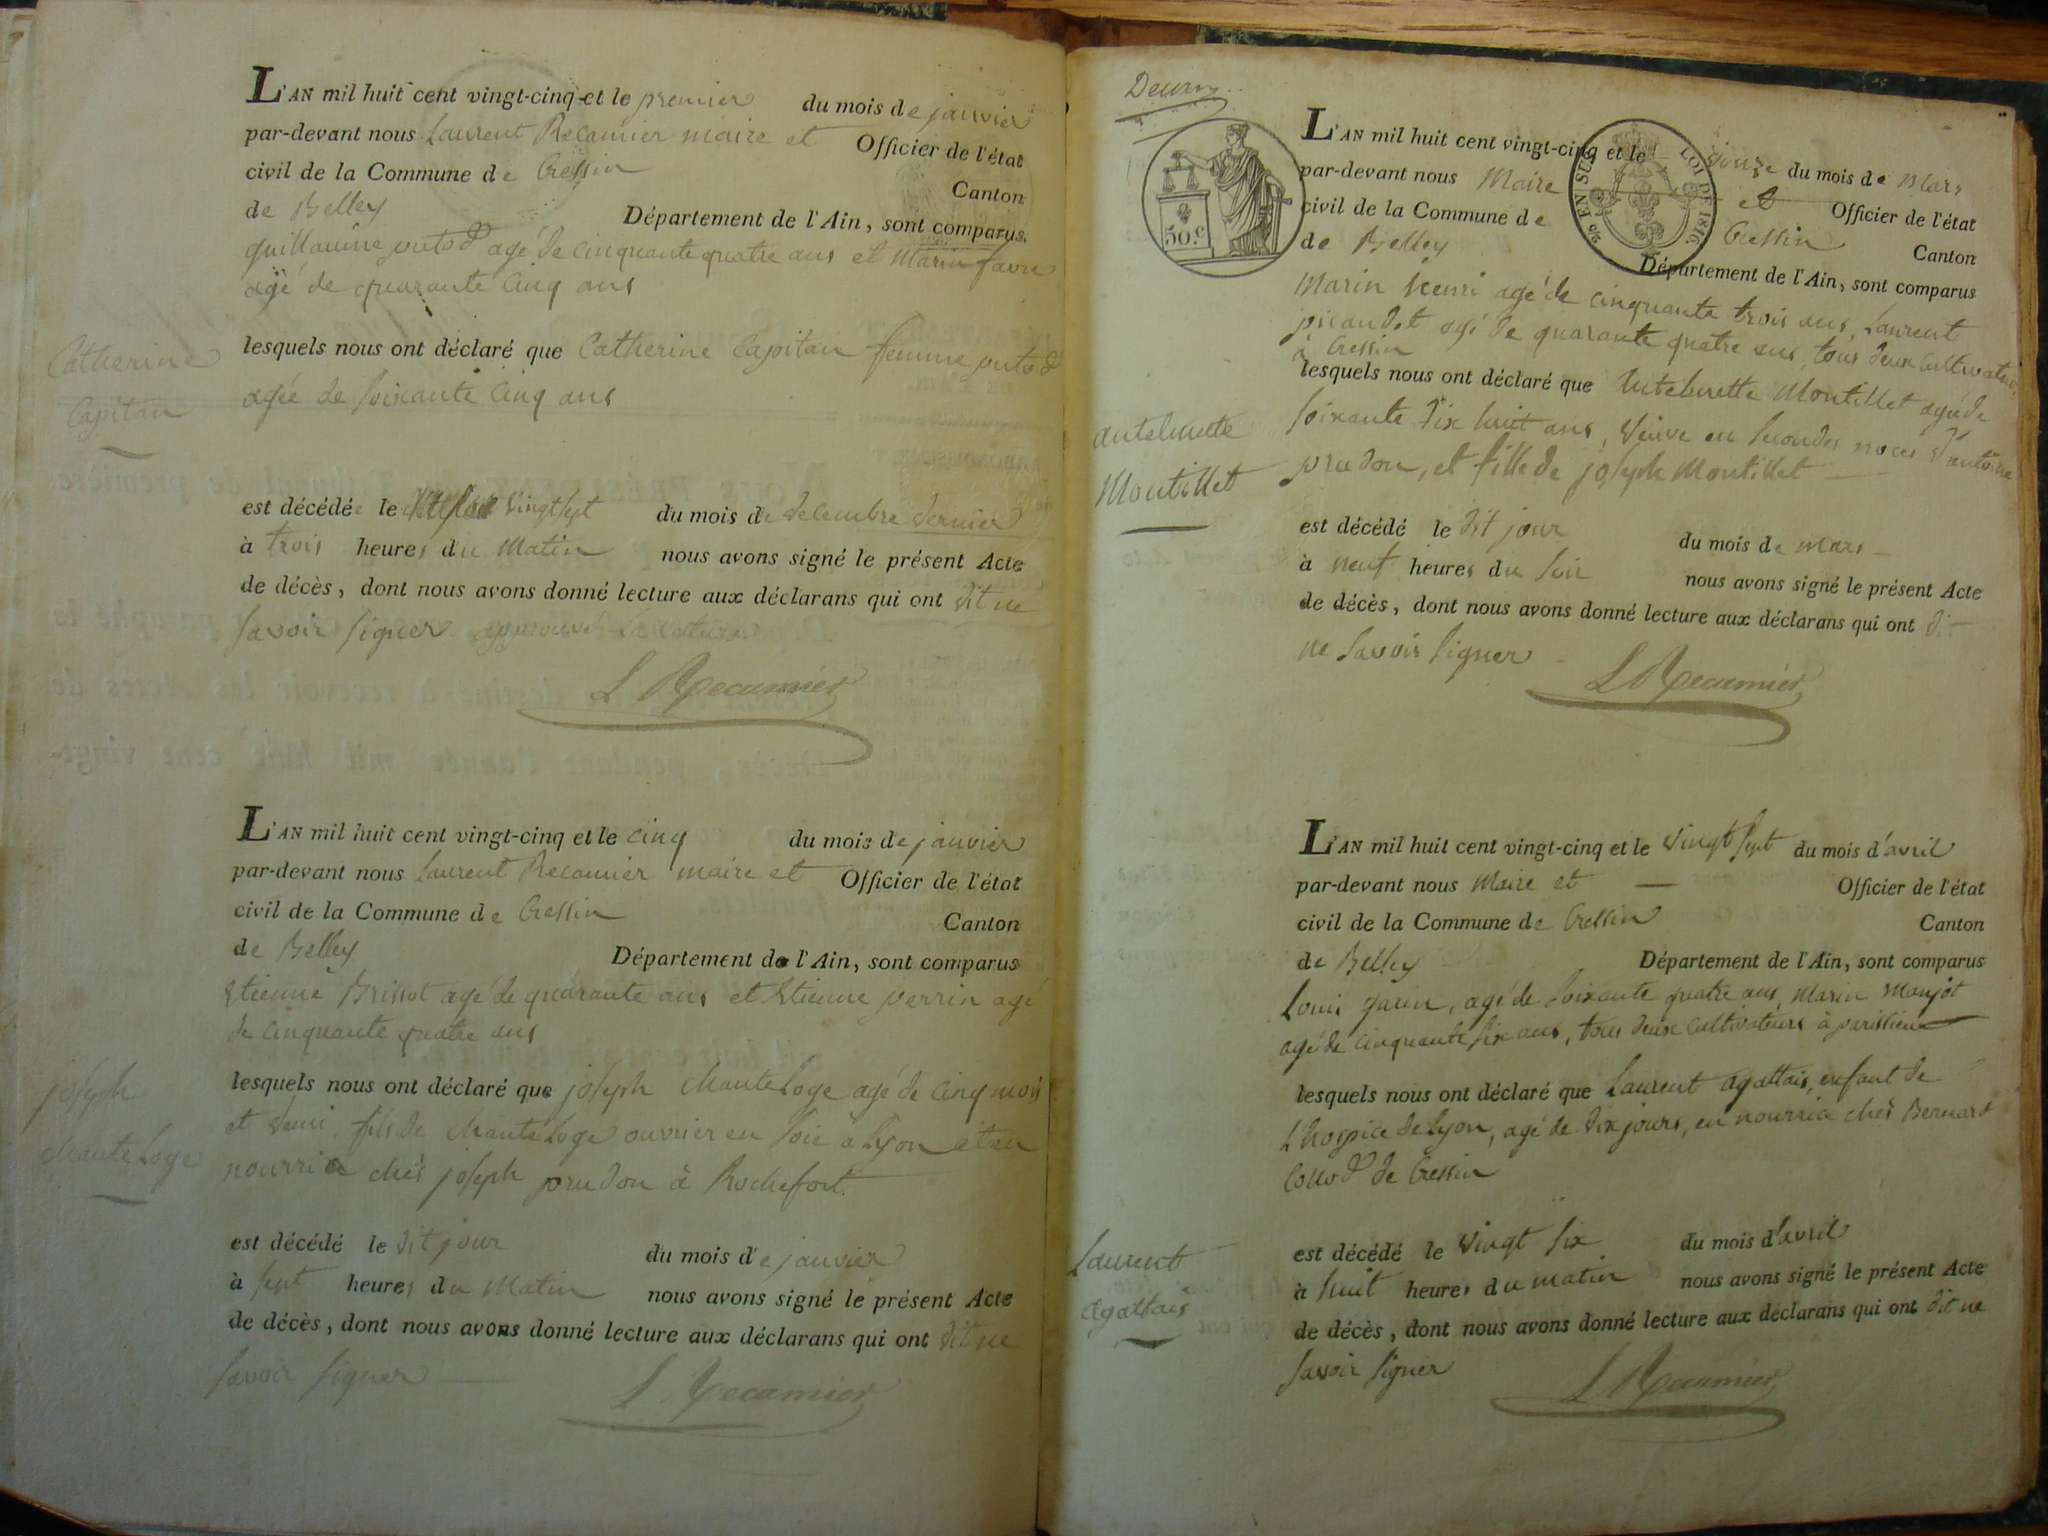 L'AN mil huit cent vingt-cinq et le premier du mois de janvier
par-devant nous Laurent Recamier maire et Officier de l'état
civil de la Commune de Cressin Canton
de Belley Département de l'Ain, sont comparus
guillaume agé de cinquante quatre ans et Marin favre
agé de quarante cinq ans
Catherine
Capitan
lesquels nous ont déclaré que Catherine Capitan femme
agée de soixante cinq ans
est décédée le vingt sept du mois de decembre dernier
à trois heures du Matin nous avons signé le présent Acte
de décès, dont nous avons donné lecture aux déclarans qui ont dit ne
savoir signer approuvé la
L Recamier
L'AN mil huit cent vingt-cinq et le cinq du mois de janvier
par-devant nous Laurent Recamier maire et Officier de l'état
civil de la Commune de Cressin Canton
de Belley Département de l'Ain, sont comparus
Etienne Brissot agé de quarante ans et Etienne perrin agé
de cinquante quatre ans
joseph
Chanteloge
lesquels nous ont déclaré que joseph Chanteloge agé de cinq mois
et demi, fils de Chanteloge ouvrier en soie à Lyon et en
nourrice chés joseph prudon à Rochefort.
est décédé le dit jour du mois de janvier
à sept heures du Matin nous avons signé le présent Acte
de décès, dont nous avons donné lecture aux déclarans qui ont dit ne
savoir signer
L Recamier
50.c
EN SUS
LOI DE 1816
L'AN mil huit cent vingt-cinq et le du mois de mars
par-devant nous Maire et Officier de l'état
civil de la Commune de Cressin Canton
de Belley Département de l'Ain, sont comparus
Marin henri agé de cinquante trois ans, Laurent
picandet agé de quarante quatre ans, tous deux cultivateurs
à Cressin
antelmette
Montillet
lesquels nous ont déclaré que Antelmette Montillet agée de
soixante dix huit ans, veuve en secondes noces d'antoine
prudon, et fille de joseph Montillet
est décédé le dit jour du mois de mars
à neuf heures du soir nous avons signé le présent Acte
de décès, dont nous avons donné lecture aux déclarans qui ont dit
ne savoir signer
L Recamier
L'AN mil huit cent vingt-cinq et le vingt sept du mois d'avril
par-devant nous Maire et Officier de l'état
civil de la Commune de Cressin Canton
de Belley Département de l'Ain, sont comparus
Louis jarin, agé de soixante quatre ans, Marin Manjot
agé de cinquante six ans, tous deux cultivateurs à parissieu
lesquels nous ont déclaré que Laurent Agattais, enfant de
L'hospice de Lyon, agé de dix jours, en nourrice chés Bernard
de Cressin
Laurent
Agattais
est décédé le vingt six du mois d'avril
à huit heures du matin nous avons signé le présent Acte
de décès, dont nous avons donné lecture aux déclarans qui ont dit ne
savoir signer
L Recamier